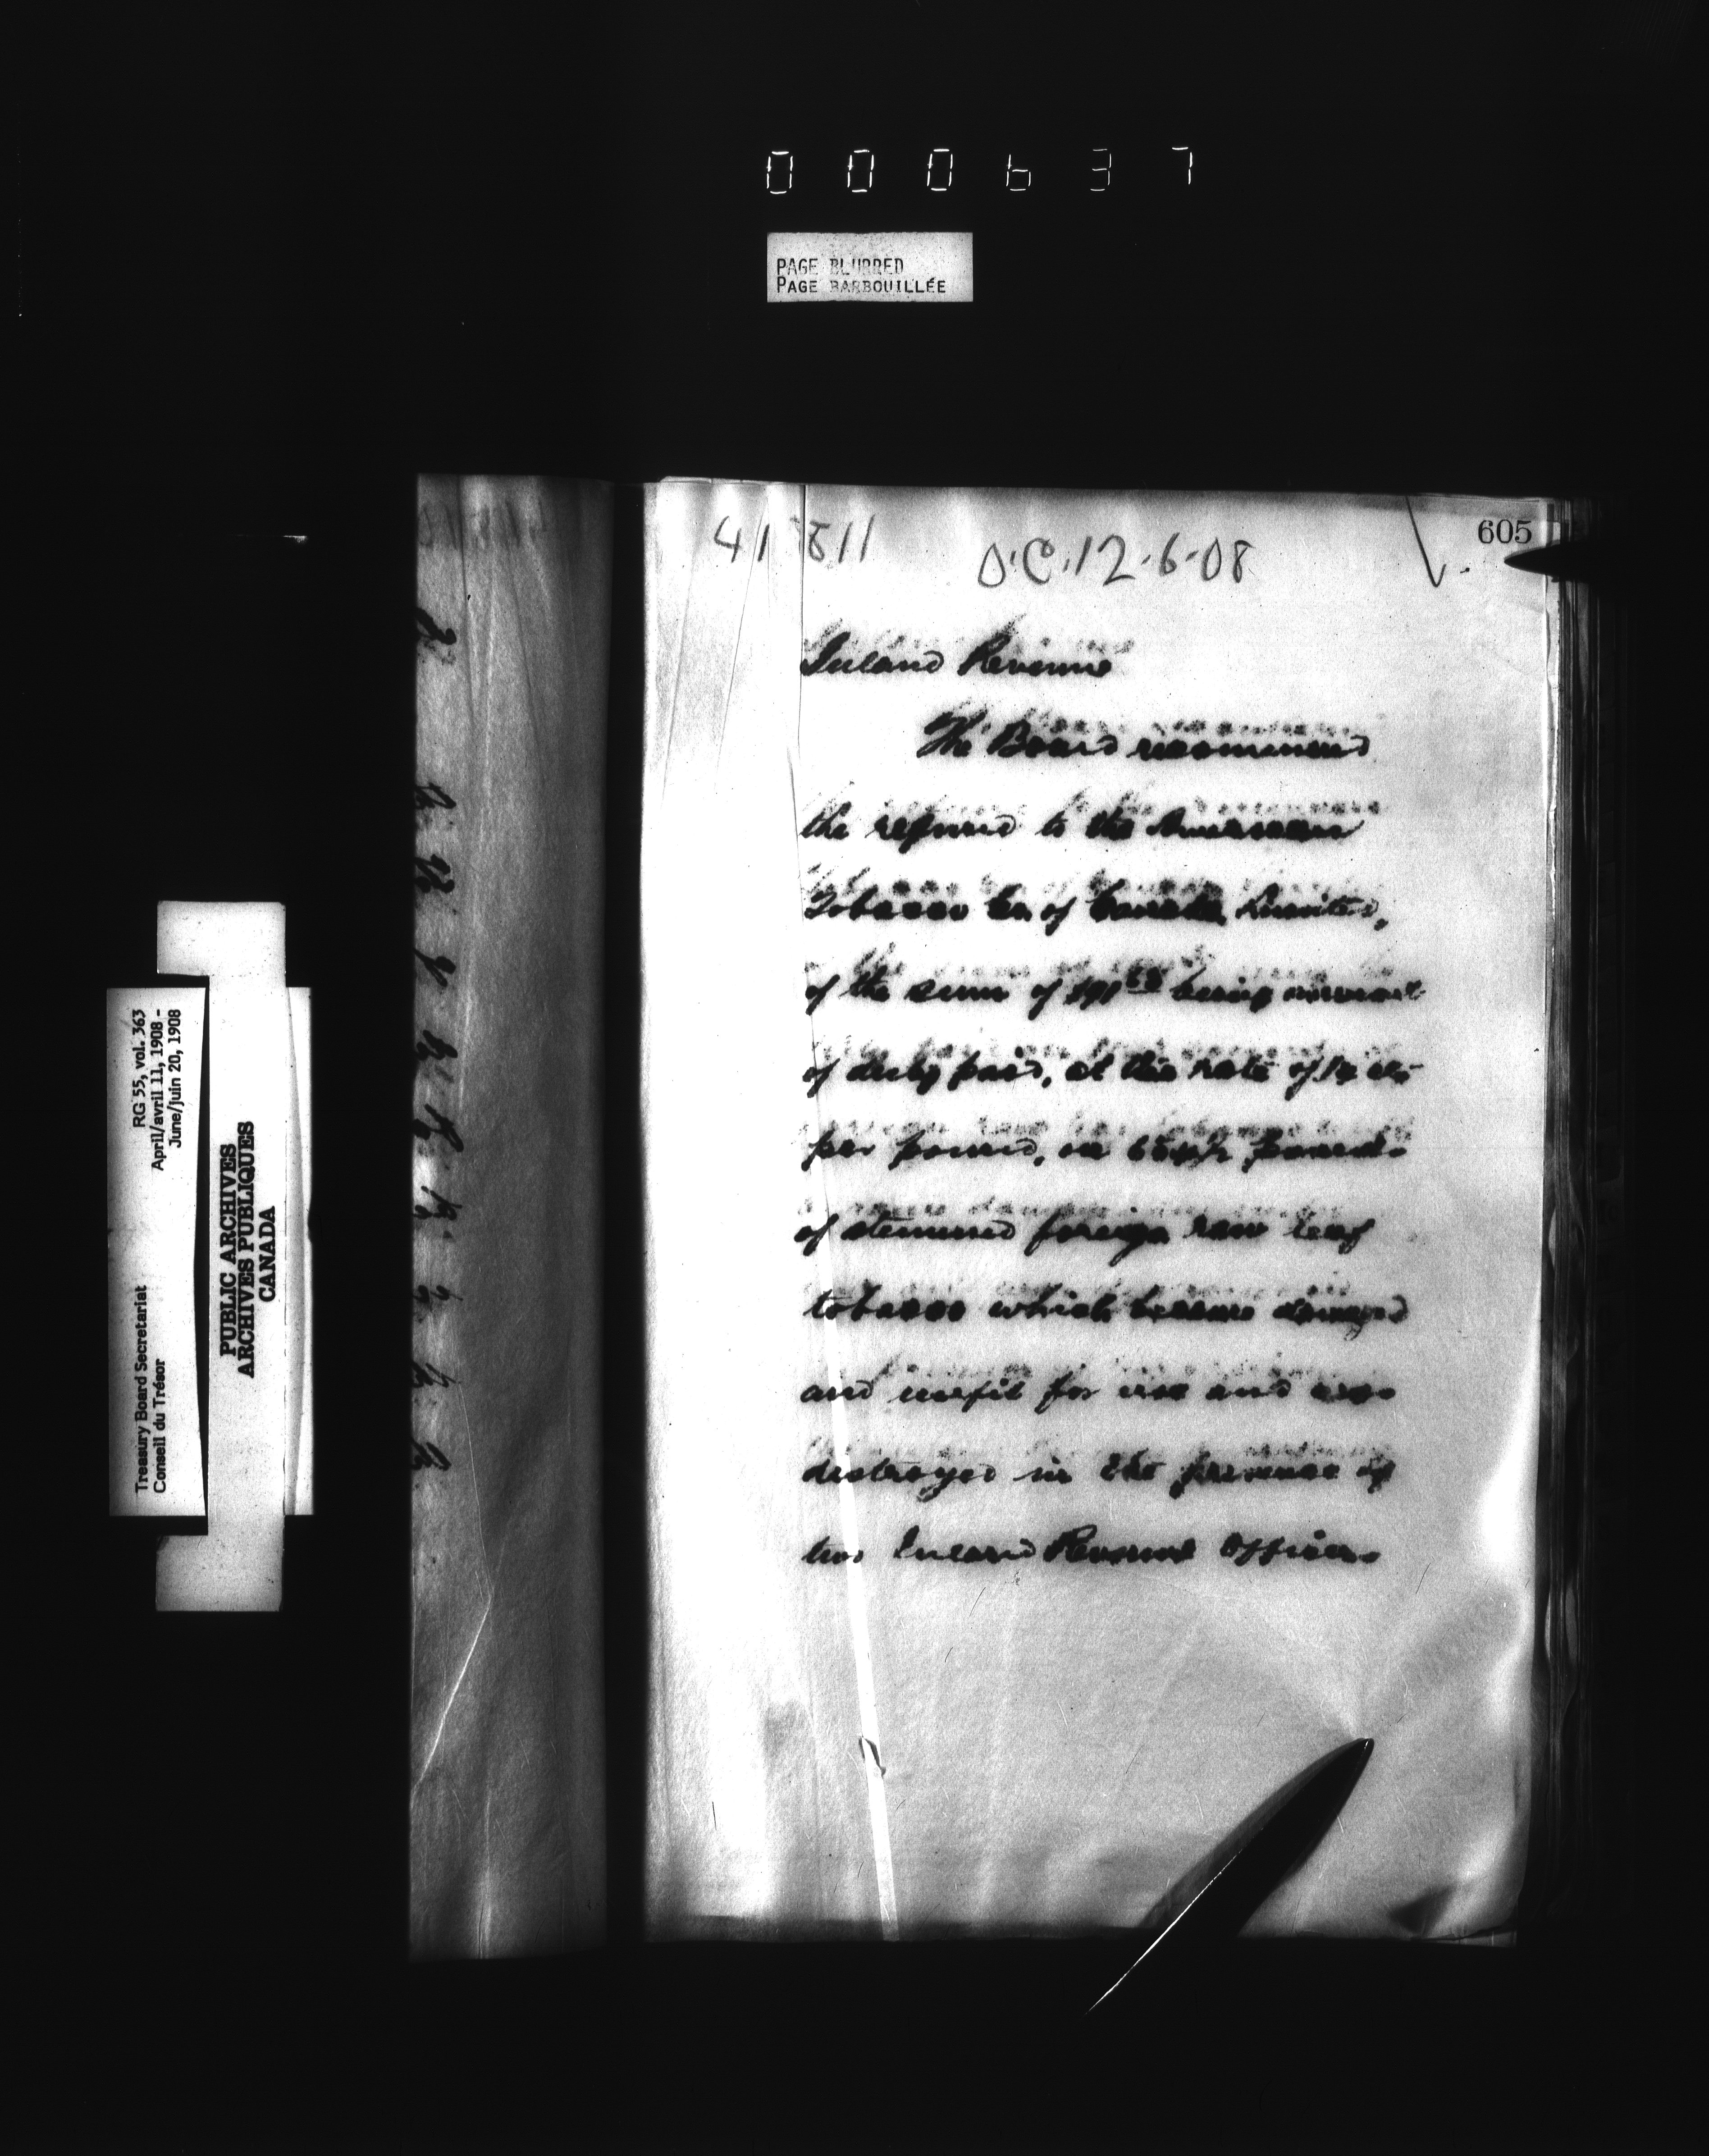 000637
PAGE BLURRED
PAGE BARBOUILLÉE
605
41811
O.C. 12-6-08
Inland Revenue
The Board recommend
the refund to the American
Tobacco Co. of Canada Limited,
of the sum of being amount
of duty paid, at the rate of 14 cts
per pound, on pounds
of stemmed foreign raw leaf
tobacco which became damaged
and unfit for use and was
destroyed in the presence of
two Inland Revenue Officers
Treasury Board Secretariat RG 55, vol. 363
Conseil du Trésor April/avril 11, 1908 -
June/juin 20, 1908
PUBLIC ARCHIVES
ARCHIVES PUBLIQUES
CANADA